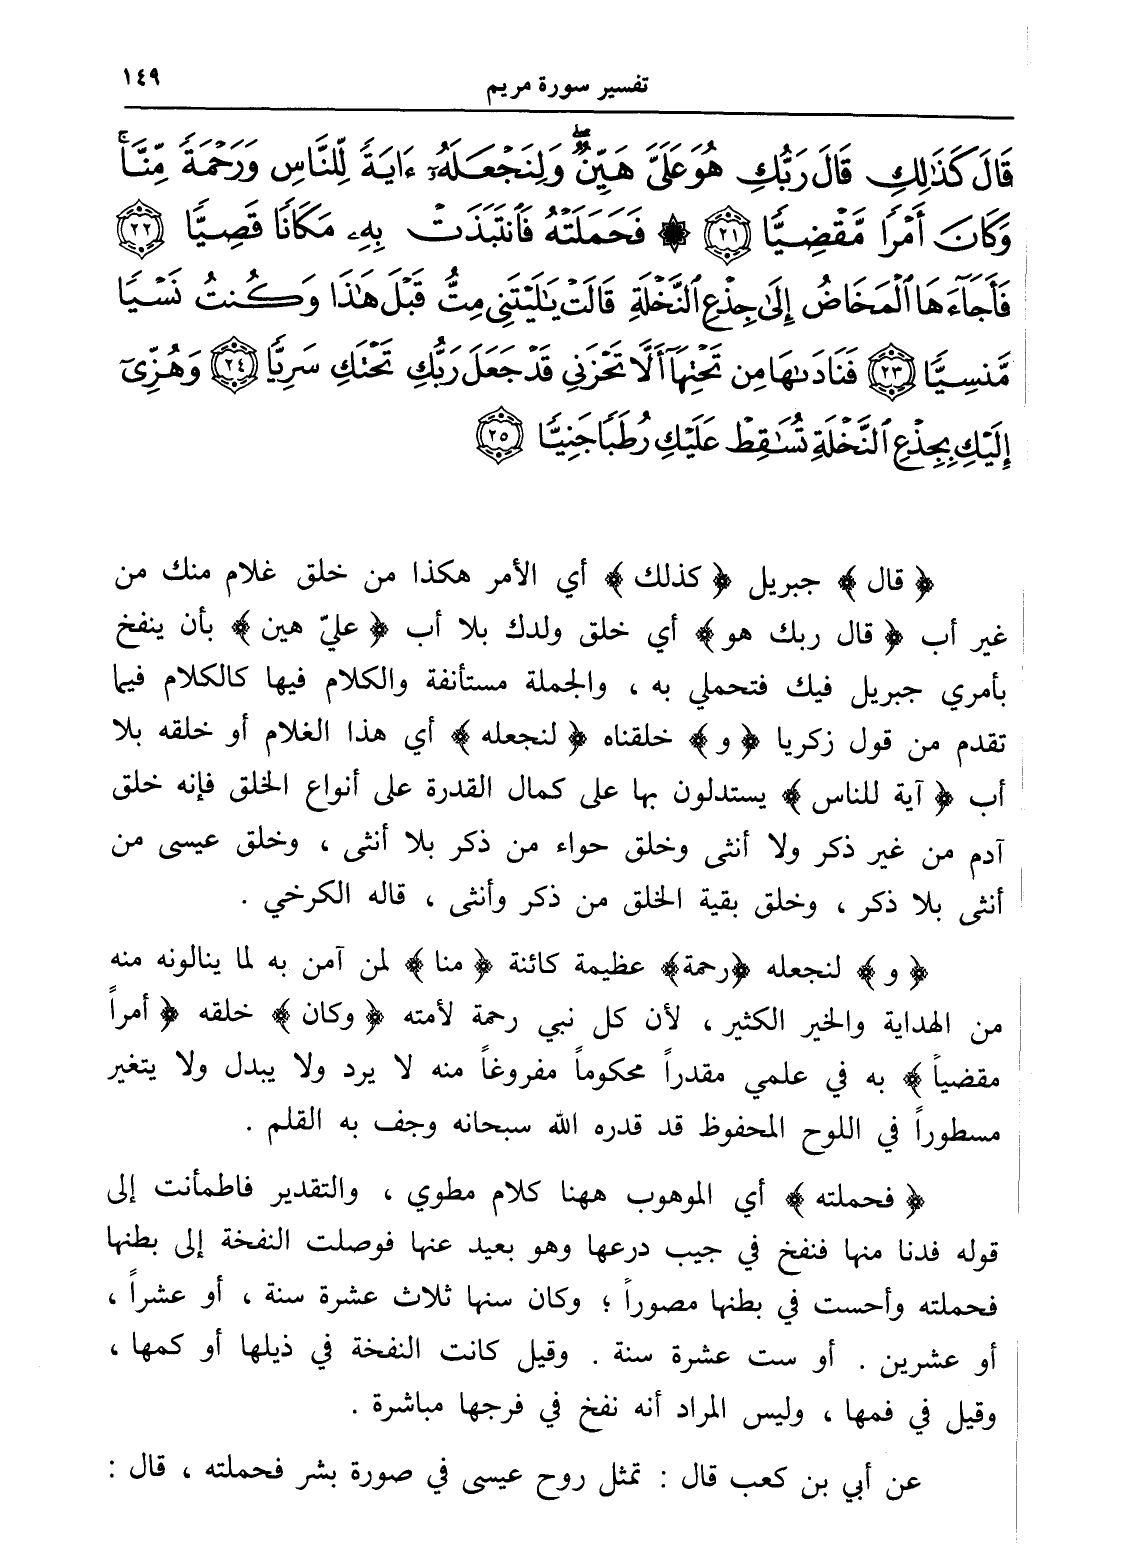 تفسير سورة مريم ١٤٩
قَالَ كَذَٰلِكِ قَالَ رَبُّكِ هُوَ عَلَىَّ هَيِّنٌ ۖ وَلِنَجْعَلَهُۥٓ ءَايَةً لِّلنَّاسِ وَرَحْمَةً مِّنَّا ۚ
وَكَانَ أَمْرًا مَّقْضِيًّا ﴿٢١﴾ ۞ فَحَمَلَتْهُ فَٱنتَبَذَتْ بِهِۦ مَكَانًا قَصِيًّا ﴿٢٢﴾
فَأَجَآءَهَا ٱلْمَخَاضُ إِلَىٰ جِذْعِ ٱلنَّخْلَةِ قَالَتْ يَٰلَيْتَنِى مِتُّ قَبْلَ هَٰذَا وَكُنتُ نَسْيًا
مَّنسِيًّا ﴿٢٣﴾ فَنَادَىٰهَا مِن تَحْتِهَآ أَلَّا تَحْزَنِى قَدْ جَعَلَ رَبُّكِ تَحْتَكِ سَرِيًّا ﴿٢٤﴾ وَهُزِّىٓ
إِلَيْكِ بِجِذْعِ ٱلنَّخْلَةِ تُسَٰقِطْ عَلَيْكِ رُطَبًا جَنِيًّا ﴿٢٥﴾
﴿ قال ﴾ جبريل ﴿ كذلك ﴾ أي الأمر هكذا من خلق غلام منك من
غير أب ﴿ قال ربك هو ﴾ أي خلق ولدك بلا أب ﴿ عليّ هين ﴾ بأن ينفخ
بأمري جبريل فيك فتحملي به ، والجملة مستأنفة والكلام فيها كالكلام فيما
تقدم من قول زكريا ﴿ و ﴾ خلقناه ﴿ لنجعله ﴾ أي هذا الغلام أو خلقه بلا
أب ﴿ آية للناس ﴾ يستدلون بها على كمال القدرة على أنواع الخلق فإنه خلق
آدم من غير ذكر ولا أنثى وخلق حواء من ذكر بلا أنثى ، وخلق عيسى من
أنثى بلا ذكر ، وخلق بقية الخلق من ذكر وأنثى ، قاله الكرخي .
﴿ و ﴾ لنجعله ﴿رحمة﴾ عظيمة كائنة ﴿ منا ﴾ لمن آمن به لما ينالونه منه
من الهداية والخير الكثير ، لأن كل نبي رحمة لأمته ﴿ وكان ﴾ خلقه ﴿ أمراً
مقضياً ﴾ به في علمي مقدراً محكوماً مفروغاً منه لا يرد ولا يبدل ولا يتغير
مسطوراً في اللوح المحفوظ قد قدره الله سبحانه وجف به القلم .
﴿ فحملته ﴾ أي الموهوب ههنا كلام مطوي ، والتقدير فاطمأنت إلى
قوله فدنا منها فنفخ في جيب درعها وهو بعيد عنها فوصلت النفخة إلى بطنها
فحملته وأحست في بطنها مصوراً ؛ وكان سنها ثلاث عشرة سنة ، أو عشراً ،
أو عشرين . أو ست عشرة سنة . وقيل كانت النفخة في ذيلها أو كمها ،
وقيل في فمها ، وليس المراد أنه نفخ في فرجها مباشرة .
عن أبي بن كعب قال : تمثل روح عيسى في صورة بشر فحملته ، قال :